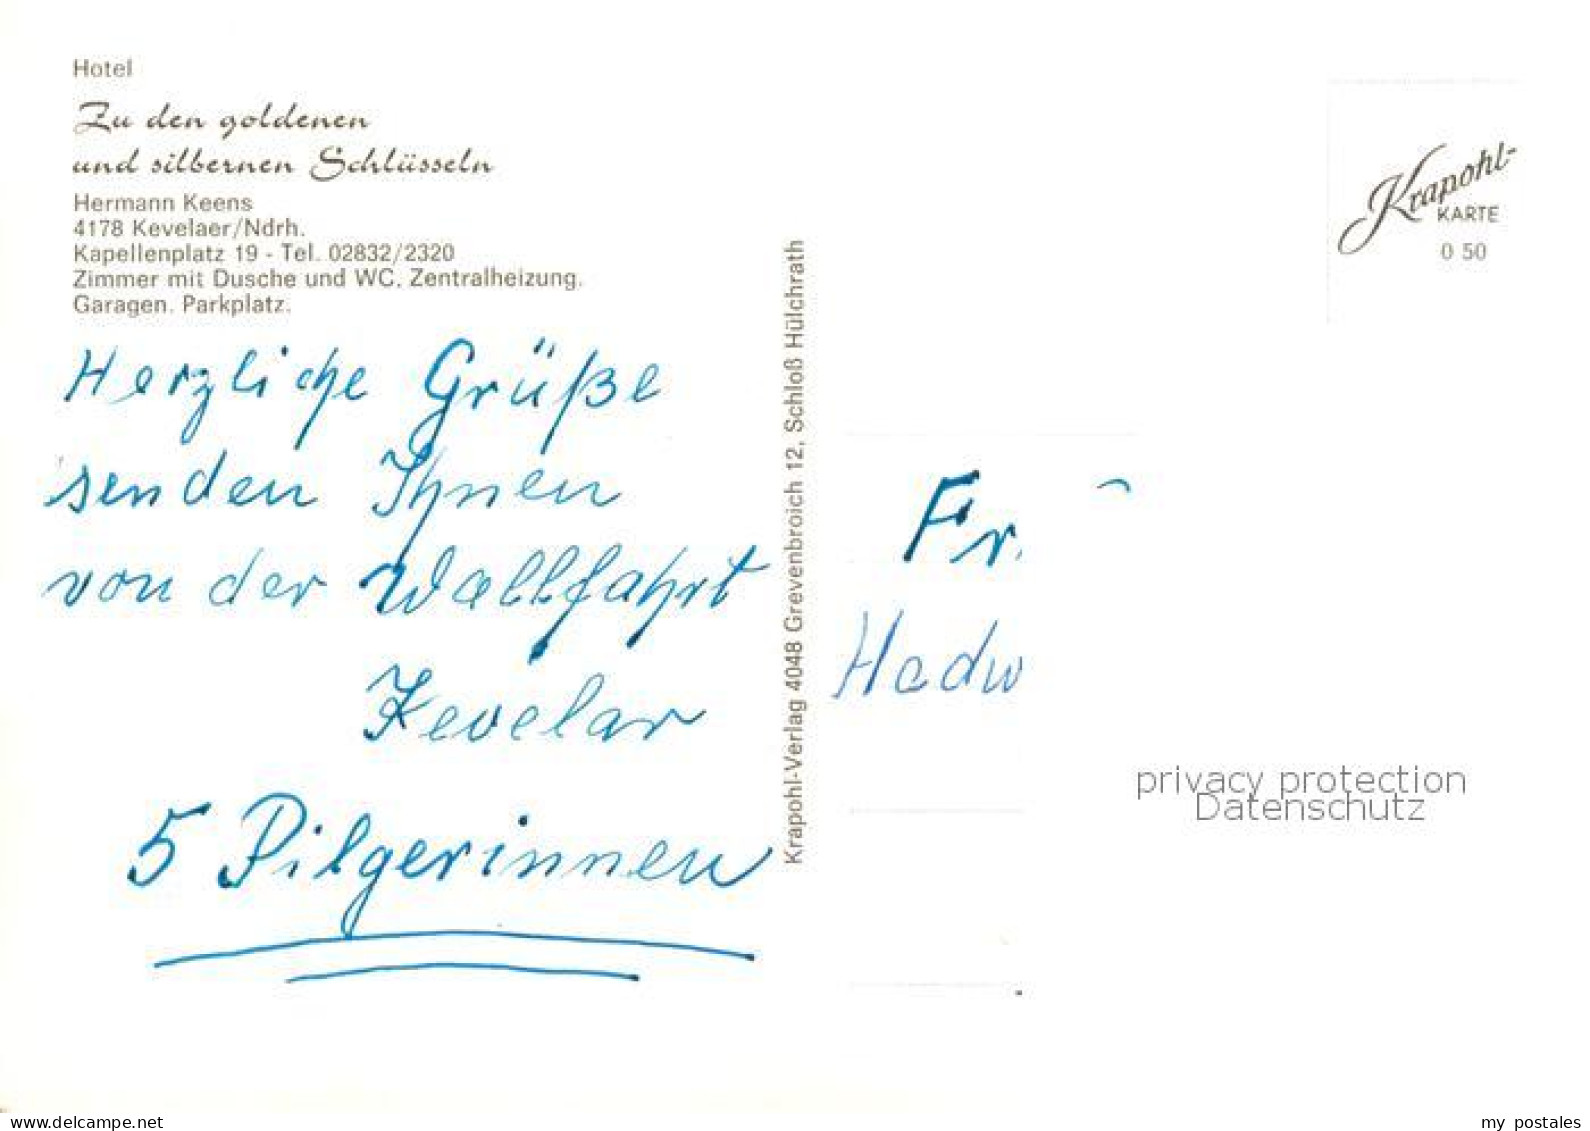 Hotel
Zu den goldenen
und silbernen Schlüsseln
Hermann Keens
4178 Kevelaer/Ndrh.
Kapellenplatz 19 - Tel. 02832/2320
Zimmer mit Dusche und WC. Zentralheizung.
Garagen. Parkplatz.
Herzliche Grüße
senden Ihnen
von der Wallfahrt
Kevelar
5 Pilgerinnen
Krapohl-Verlag 4048 Grevenbroich 12, Schloß Hülchrath
Krapohl-
KARTE
0 50
Fr.
Hadw
privacy protection
Datenschutz
my-delcampe-auctions
my_postales